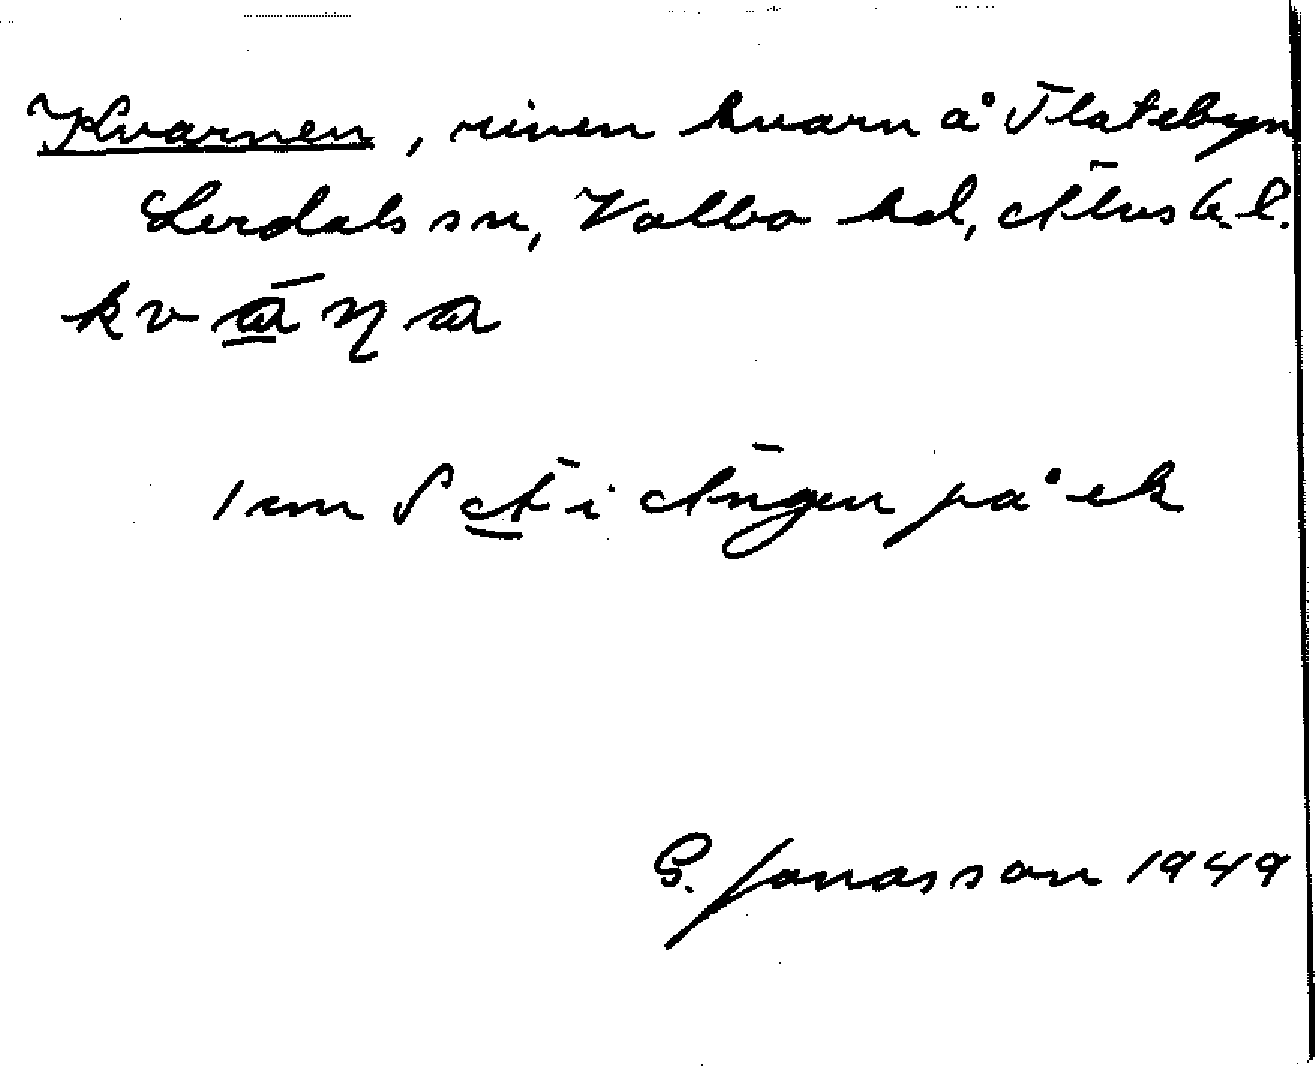 Kvarnen, riven kvarn å Flatebyn
Lerdals sn, Valbo hd, Älvsb. l.
kvaṉa
1 sm S Ä i Ängen på ek
G. Jonasson 1949